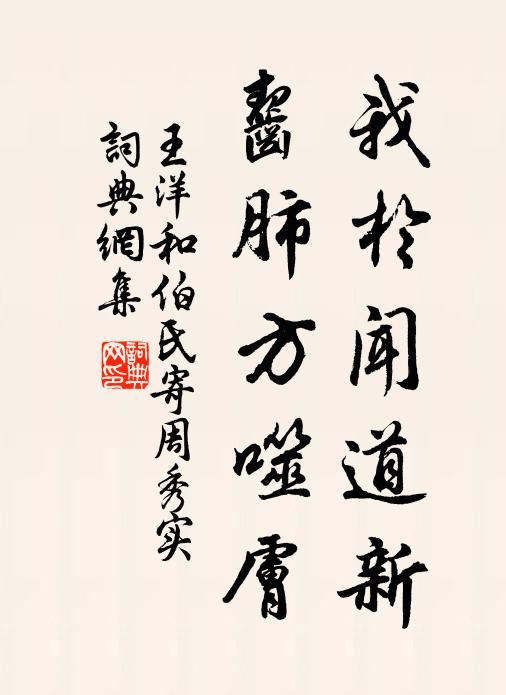 我於聞道新
齧肺方噬膚
王洋和伯氏寄周秀实
詞典網集
詞典網印